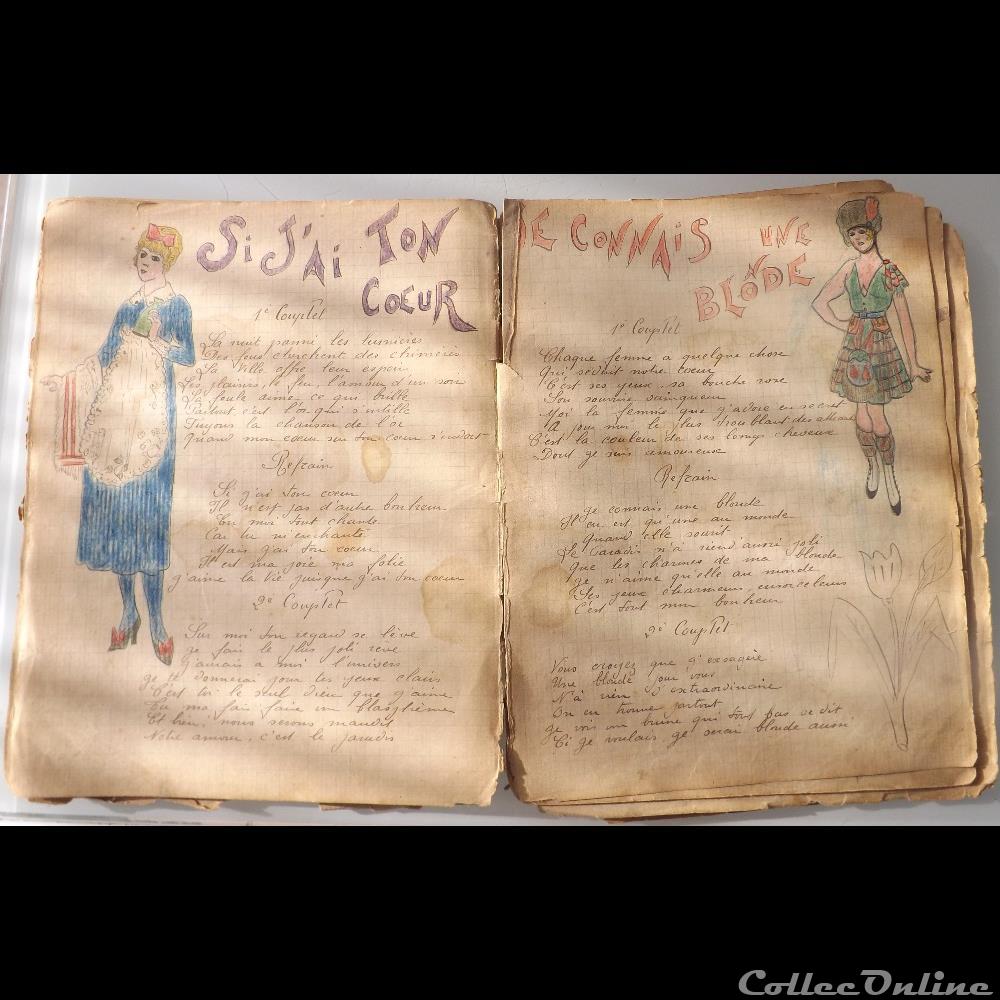 Si J'ai Ton
Cœur
1e Couplet
La nuit parmi les lumières
Des fous cherchent des chimères
La Ville offre leur espoir
Les plaisirs, le feu, l'amour d'un soir
La foule aime ce qui brille
Partout c'est l'or qui scintille
Fuyons la chanson de l'or
Quand mon cœur sur ton cœur s'endort
Refrain
Si j'ai ton cœur
Il n'est pas d'autre bonheur
En moi tout chante
Car tu m'enchante
Mais j'ai ton cœur
Il est ma joie ma folie
j'aime la vie puisque j'ai ton cœur
2e Couplet
Sur moi ton regard se lève
je fais le plus joli rêve
j'amais a moi l'univers
je te donnerai pour tes yeux clairs
C'est toi le seul dieu que j'aime
Tu ma fais faire un blasphème
Et bien, nous serons maudis
Notre amour, c'est le paradis
Je Connais Une
Blonde
1e Couplet
Chaque femme a quelque chose
Qui séduit notre cœur
C'est ses yeux sa bouche rose
Son sourire vainqueur
Moi la femme que j'adore en secret
A pour moi le plus troublant des attraits
C'est la couleur de ses longs cheveux
Dont je suis amoureux
Refrain
je connais une blonde
Il en est qu'une au monde
Quand elle sourit
Le Paradis n'a rien d'aussi joli
Que les charmes de ma blonde
je n'aime qu'elle au monde
Ses yeux charmeurs ensorceleurs
C'est tout mon bonheur
2e Couplet
Vous croyez que j'exagère
Une blonde pour vous
N'a rien d'extraordinaire
On en trouve partout
je vois un brune qui tout bas se dit
Si je voulais je serai blonde aussi
CollecOnline